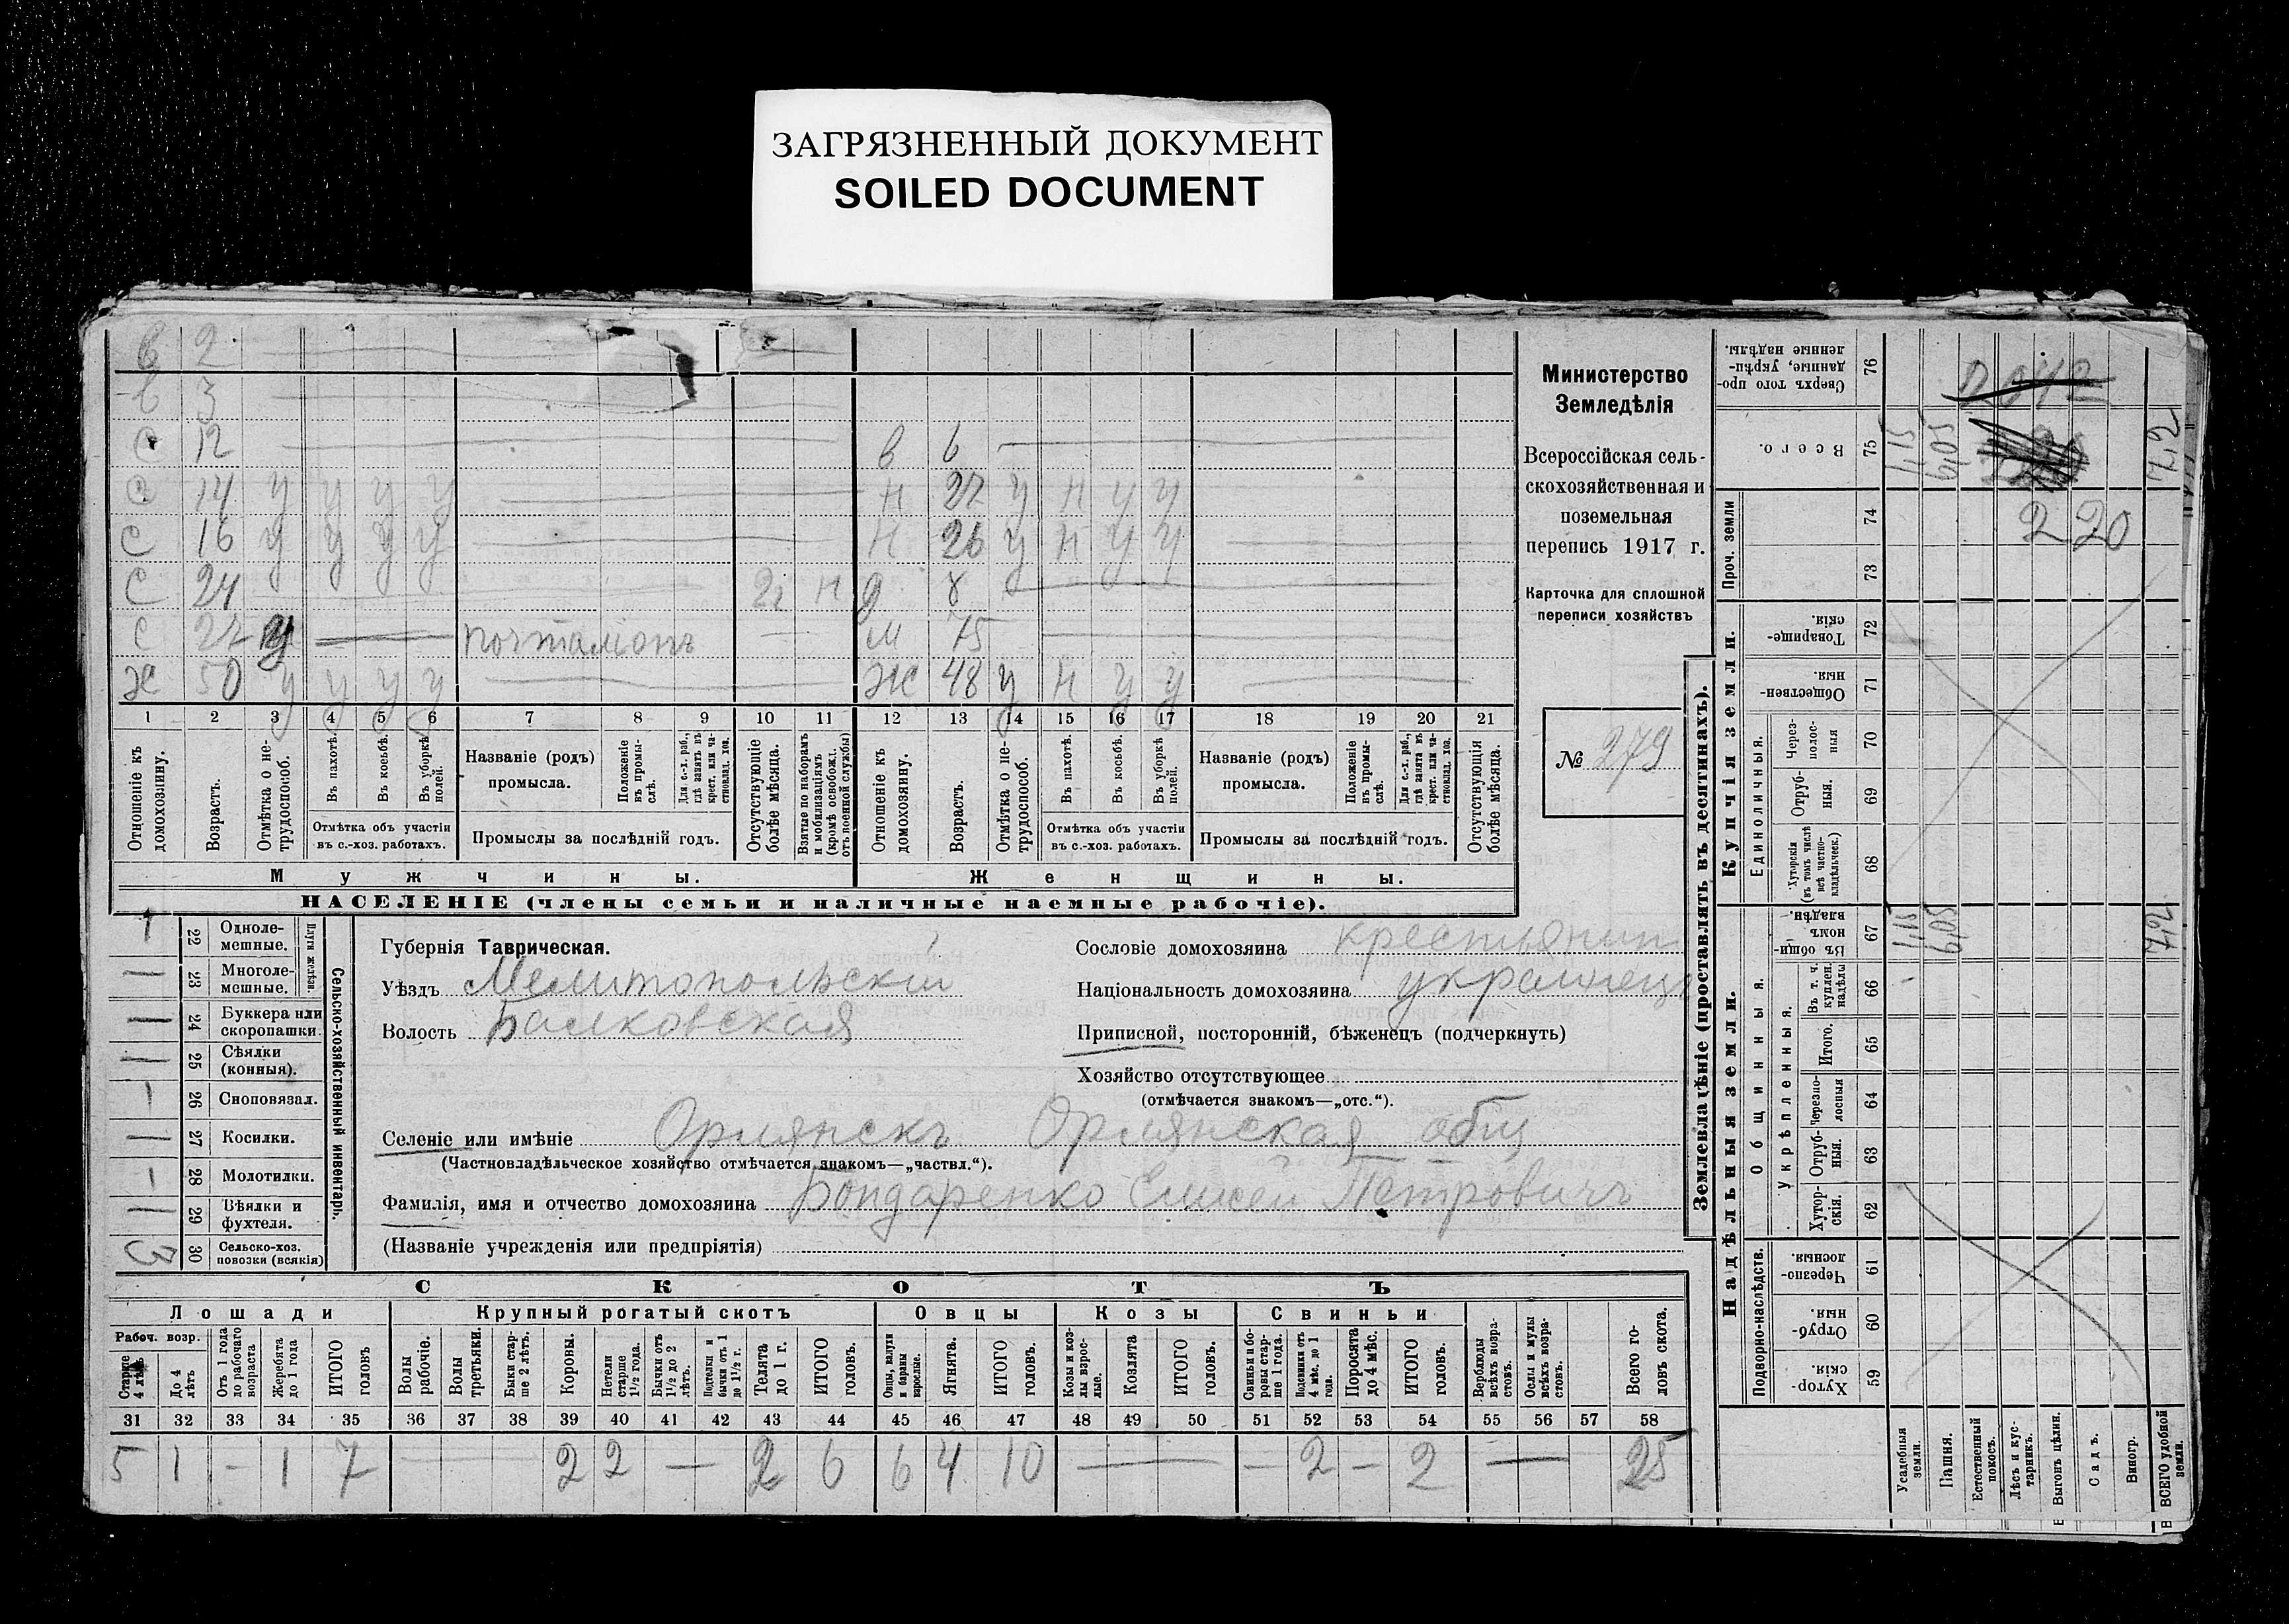 ЗАГРЯЗНЕННЫЙ ДОКУМЕНТ
SOILED DOCUMENT
в 2
в 3
с 12 — в 6
с 14 у у у у — н 27 у н у у
с 16 у у у у — н 26 у н у у —
с 24 — н д 8 —
с 27 у — почталіонъ — м 75 —
ж 50 у у у у — ж 48 у н у у —
1 2 3 4 5 6 7 8 9 10 11 12 13 14 15 16 17 18 19 20 21
Отношеніе къ домохозяину.
Возрастъ.
Отмѣтка о нетрудоспособ.
Въ пахотѣ.
Въ косьбѣ.
Въ уборкѣ полей.
Отмѣтка объ участіи
въ с.-хоз. работахъ.
Названіе (родъ)
промысла.
Положеніе въ промыслѣ.
Для с.-х. раб., гдѣ занятъ въ крест. или частновлад. хоз.
Промыслы за послѣдній годъ.
Отсутствующіе болѣе мѣсяца.
Взятые по наборамъ и мобилизаціямъ (кромѣ освобожд. отъ военной службы)
Отношеніе къ домохозяину.
Возрастъ.
Отмѣтка о нетрудоспособ.
Въ пахотѣ.
Въ косьбѣ.
Въ уборкѣ полей.
Отмѣтка объ участіи
въ с.-хоз. работахъ.
Названіе (родъ)
промысла.
Положеніе въ промыслѣ.
Для с.-х. раб., гдѣ занятъ въ крест. или частновлад. хоз.
Промыслы за послѣдній годъ.
Отсутствующія болѣе мѣсяца.
Мужчины.
Женщины.
НАСЕЛЕНІЕ (члены семьи и наличные наемные рабочіе).
Министерство
Земледѣлія
Всероссійская сель-
скохозяйственная и
поземельная
перепись 1917 г.
Карточка для сплошной
переписи хозяйствъ
№ 279
1 22 Одноле-
мешные.
— 23 Многоле-
мешные.
Плуги желѣзн.
— 24 Буккера или
скоропашки.
— 25 Сѣялки
(конныя).
— 26 Сноповязал.
— 27 Косилки.
— 28 Молотилки.
— 29 Вѣялки и
фухтеля.
3 30 Сельско-хоз.
повозки (всякія)
Сельско-хозяйственный инвентарь.
Губернія Таврическая.
Уѣздъ Мелитопольскій
Волость Балковская
Сословіе домохозяина крестьянин
Національность домохозяина украинецъ
Приписной, посторонній, бѣженецъ (подчеркнуть)
Хозяйство отсутствующее
(отмѣчается знакомъ—„отс.“).
Селеніе или имѣніе Орлянскъ Орлянская общ
(Частновладѣльческое хозяйство отмѣчается знакомъ—„частвл.“).
Фамилія, имя и отчество домохозяина Бондаренко Елисей Петровичъ
(Названіе учрежденія или предпріятія)
СКОТЪ
Лошади
Крупный рогатый скотъ
Овцы
Козы
Свиньи
Рабоч. возр.
Старше 4 лѣтъ
До 4 лѣтъ
Отъ 1 года до рабочаго возраста
Жеребята до 1 года
ИТОГО головъ
Волы рабочіе.
Волы третьяки.
Быки старше 2 лѣтъ.
Коровы.
Нетели старше 1½ года.
Бычки отъ 1½ до 2 лѣтъ.
Подтелки и бычки отъ 1 до 1½ г.
Телята до 1 г.
ИТОГО головъ.
Овцы, валухи и бараны взрослые.
Ягнята.
ИТОГО головъ.
Козы и козлы взрослые.
Козлята
ИТОГО головъ.
Свиньи и боровы старше 1 года.
Подсвинки отъ 4 мѣс. до 1 года.
Поросята до 4 мѣс.
ИТОГО головъ.
Верблюды всѣхъ возрастовъ.
Ослы и мулы всѣхъ возрастовъ.
Всего головъ скота.
31 32 33 34 35 36 37 38 39 40 41 42 43 44 45 46 47 48 49 50 51 52 53 54 55 56 57 58
5 1 - 1 7 — 2 2 — 2 6 6 4 10 — — 2 — 2 — 25
Землевладѣніе (проставлять въ десятинахъ).
Надѣльныя земли.
Купчія земли.
Проч. земли
Подворно-наслѣдств.
Общинныя.
Укрѣпленныя.
Единоличныя.
Сверхъ того проданные, укрѣпленные надѣлы. 76
Всего. 75 1,15 6,05 7,2
74 2 20
73
Товарищескія. 72
Общественныя. 71
Черезполосныя 70
Отрубныя. 69
Хуторскія (въ томъ числѣ всѣ частновладѣльческ.) 68
Въ общинномъ владѣн. 67 1,15 6,05 7,2
Въ т. ч. куплен. надѣлы 66
Итого. 65
Черезполосныя 64
Отрубныя. 63
Хуторскія. 62
Черезполосныя. 61
Отрубныя. 60
Хуторскія. 59
Усадебныя земли.
Пашня.
Естественный покосъ.
Лѣсъ и кустарникъ.
Выгонъ цѣлин.
Садъ.
Виногр.
ВСЕГО удобной земли.